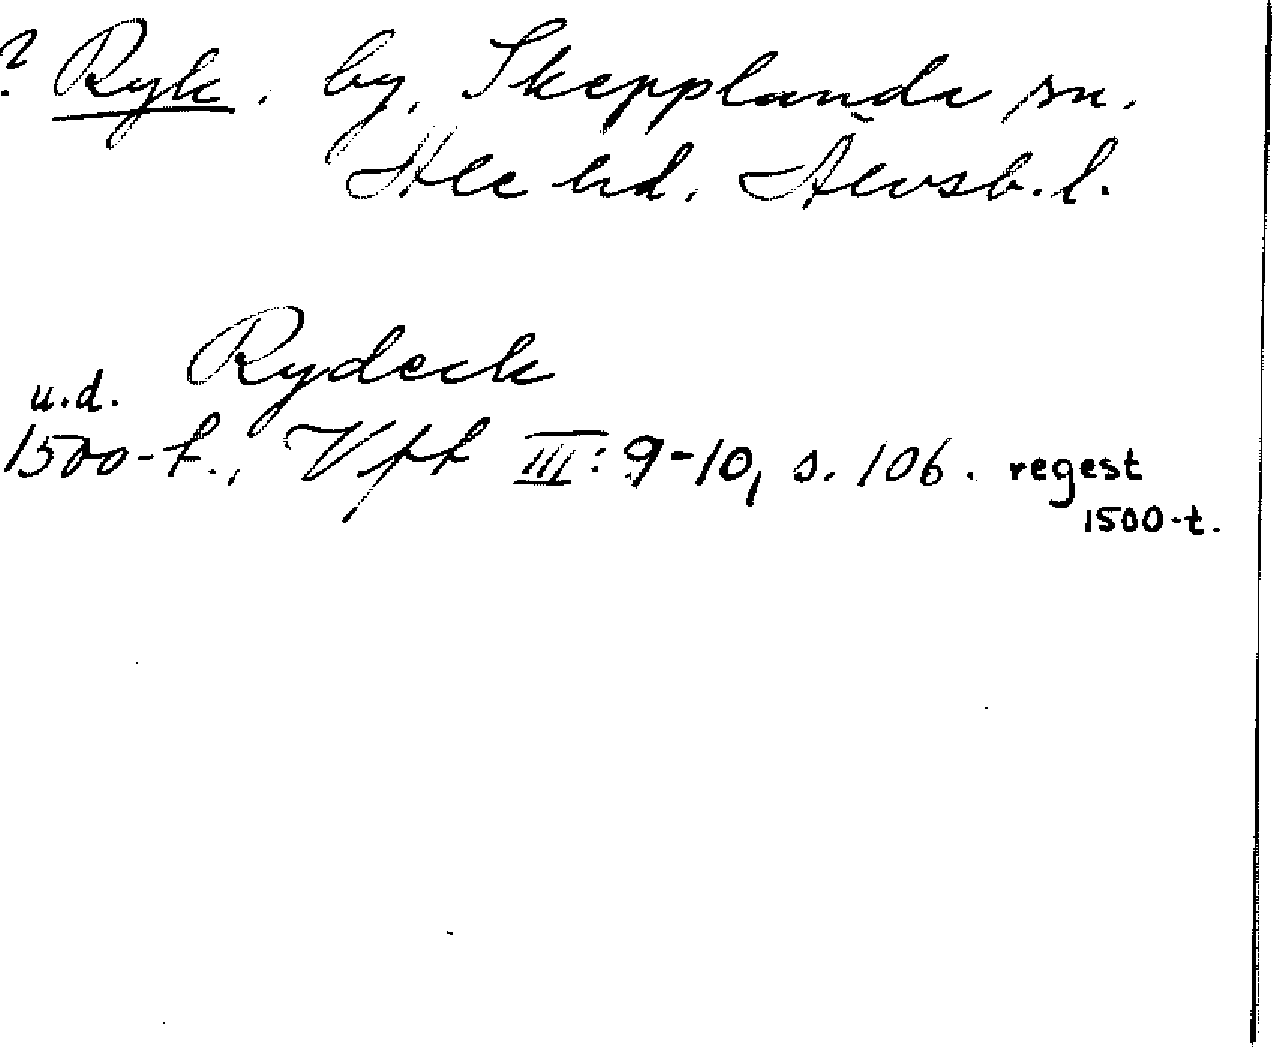 ? Ryk, by, Skepplanda sn.
Ale hd. Älvsb. l.
Rydeck
u.d.
1500-t., Vfft III: 9-10, s. 106. regest
1500-t.